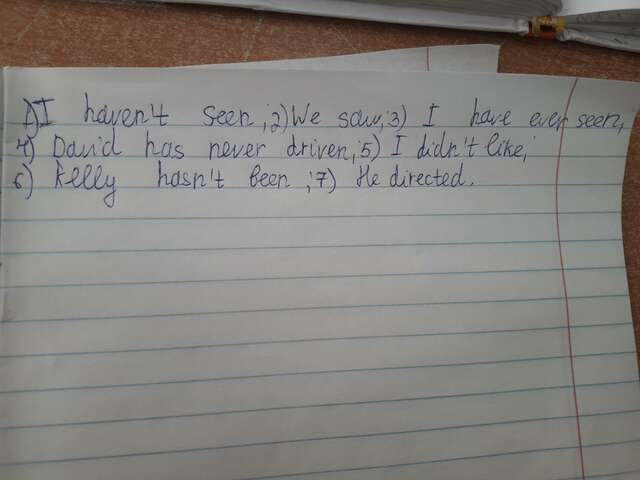 1) I haven't seen; 2) We saw; 3) I have ever seen,
4) David has never driven; 5) I didn't like;
6) Kelly hasn't been; 7) He directed.